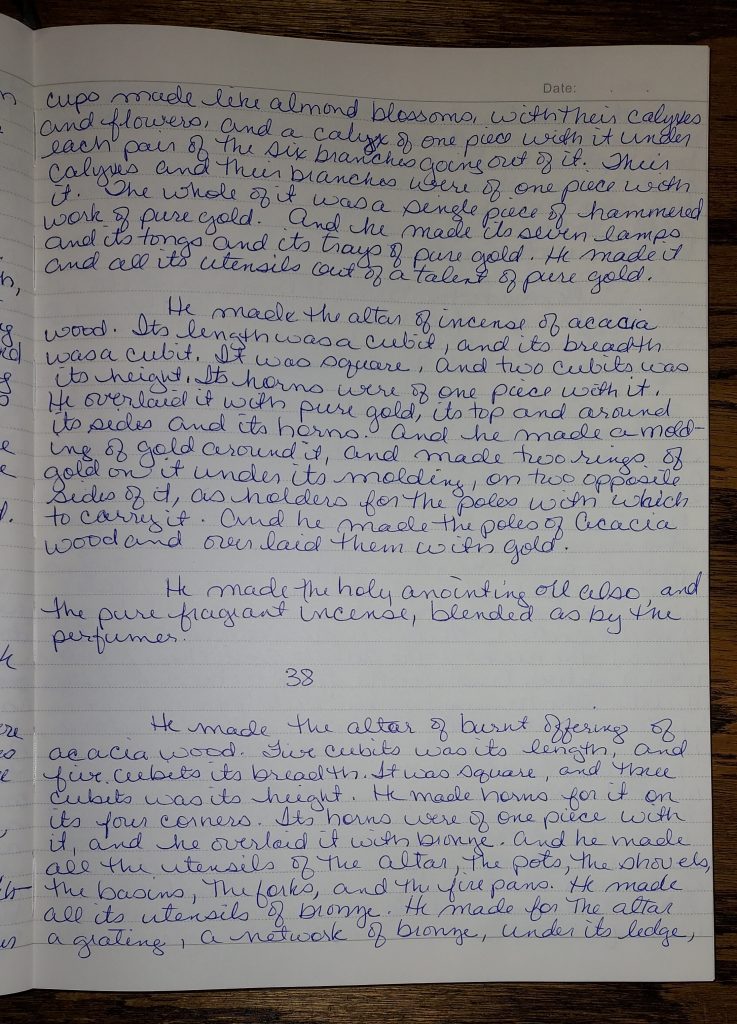 Date: . .
cups made like almond blossoms, with their calyxes
and flowers, and a calyx of one piece with it under
each pair of the six branches going out of it. Their
calyxes and their branches were of one piece with
it. The whole of it was a single piece of hammered
work of pure gold. And he made its seven lamps
and its tongs and its trays of pure gold. He made it
and all its utensils out of a talent of pure gold.
He made the altar of incense of acacia
wood. Its length was a cubit, and its breadth
was a cubit. It was square, and two cubits was
its height. Its horns were of one piece with it.
He overlaid it with pure gold, its top and around
its sides and its horns. And he made a mold-
ing of gold around it, and made two rings of
gold on it under its molding, on two opposite
sides of it, as holders for the poles with which
to carry it. And he made the poles of acacia
wood and overlaid them with gold.
He made the holy anointing oil also, and
the pure fragrant incense, blended as by the
perfumer.
38
He made the altar of burnt offering of
acacia wood. Five cubits was its length, and
five cubits its breadth. It was square, and three
cubits was its height. He made horns for it on
its four corners. Its horns were of one piece with
it, and he overlaid it with bronze. And he made
all the utensils of the altar, the pots, the shovels,
the basins, the forks, and the fire pans. He made
all its utensils of bronze. He made for the altar
a grating, a network of bronze, under its ledge,